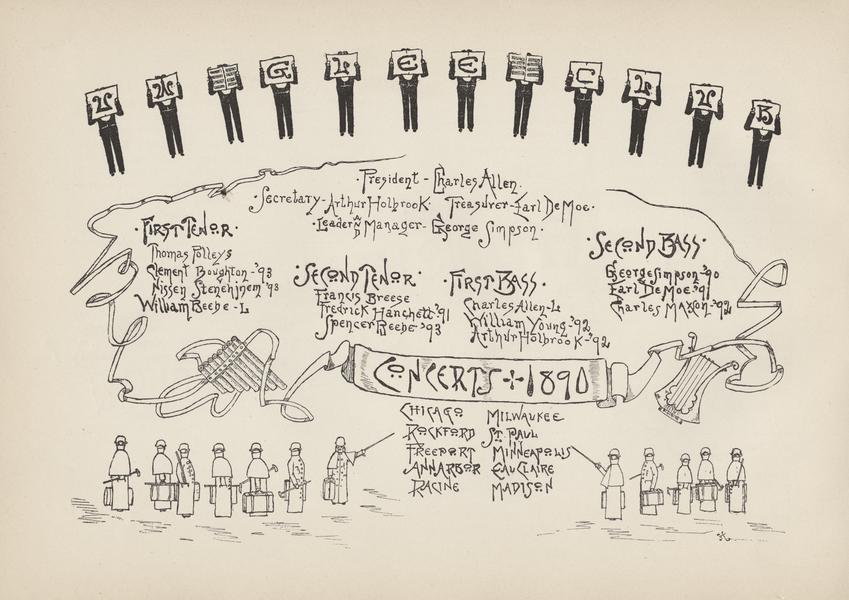 U W GLEE CLUB
·President - Charles Allen.
·Secretary - Arthur Holbrook· Treasurer - Earl De Moe·
·Leader and Manager - George Simpson·
·First Tenor·
Thomas Polleys
Clement Boughton - '93
Nissen Stenehjnem '93
William Beebe - L
·Second Tenor·
Francis Breese
Fredrick Hanchett '91
Spencer Beebe '93
·First Bass·
Charles Allen - L
William Young - '92
Arthur Holbrook - '92
·Second Bass·
George Simpson - '90
Earl De Moe - '91
Charles Maxson - '92
Concerts + 1890
Chicago
Rockford
Freeport
Ann Arbor
Racine
Milwaukee
St. Paul
Minneapolis
Eau Claire
Madison